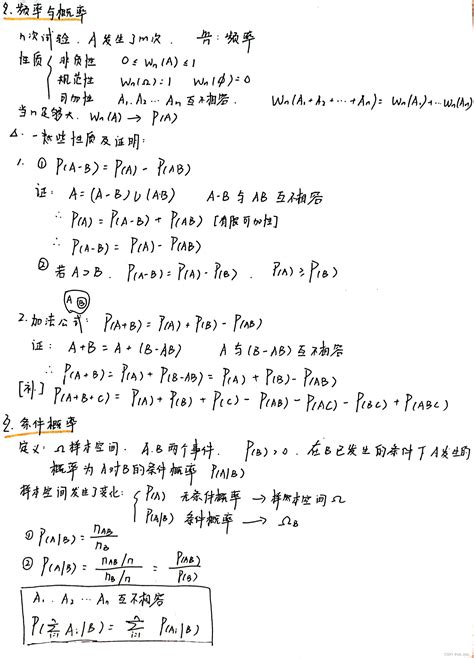 2. 频率与概率
n次试验, A发生了m次, m/n: 频率
性质 { 非负性 0 ≤ Wn(A) ≤ 1
规范性 Wn(Ω)=1 Wn(ϕ)=0
可加性 A₁, A₂ … An 互不相容. Wn(A₁+A₂+…+An) = Wn(A₁)+…Wn(An)
当n足够大, Wn(A) → P(A)
△. 一些性质及证明:
1. ① P(A-B) = P(A) - P(AB)
证: A = (A-B)∪(AB) A-B 与 AB 互不相容
∴ P(A) = P(A-B) + P(AB) [有限可加性]
∴ P(A-B) = P(A) - P(AB)
② 若 A⊃B, P(A-B) = P(A) - P(B), P(A) ≥ P(B)
A B
2. 加法公式: P(A+B) = P(A) + P(B) - P(AB)
证: A+B = A + (B-AB) A 与 (B-AB) 互不相容
∴ P(A+B) = P(A) + P(B-AB) = P(A) + P(B) - P(AB)
[补] P(A+B+C) = P(A) + P(B) + P(C) - P(AB) - P(AC) - P(BC) + P(ABC)
3. 条件概率
定义: Ω样本空间, A.B两个事件, P(B)>0, 在B已发生的条件下A发生的
概率为A对B的条件概率 P(A|B)
样本空间发生了变化: { P(A) 无条件概率 → 样本空间 Ω
P(A|B) 条件概率 → Ω_B
① P(A|B) = n_AB / n_B
② P(A|B) = (n_AB/n) / (n_B/n) = P(AB) / P(B)
A₁, A₂ … An 互不相容
P(∑ᵢ₌₁ⁿ Aᵢ|B) = ∑ᵢ₌₁ⁿ P(Aᵢ|B)